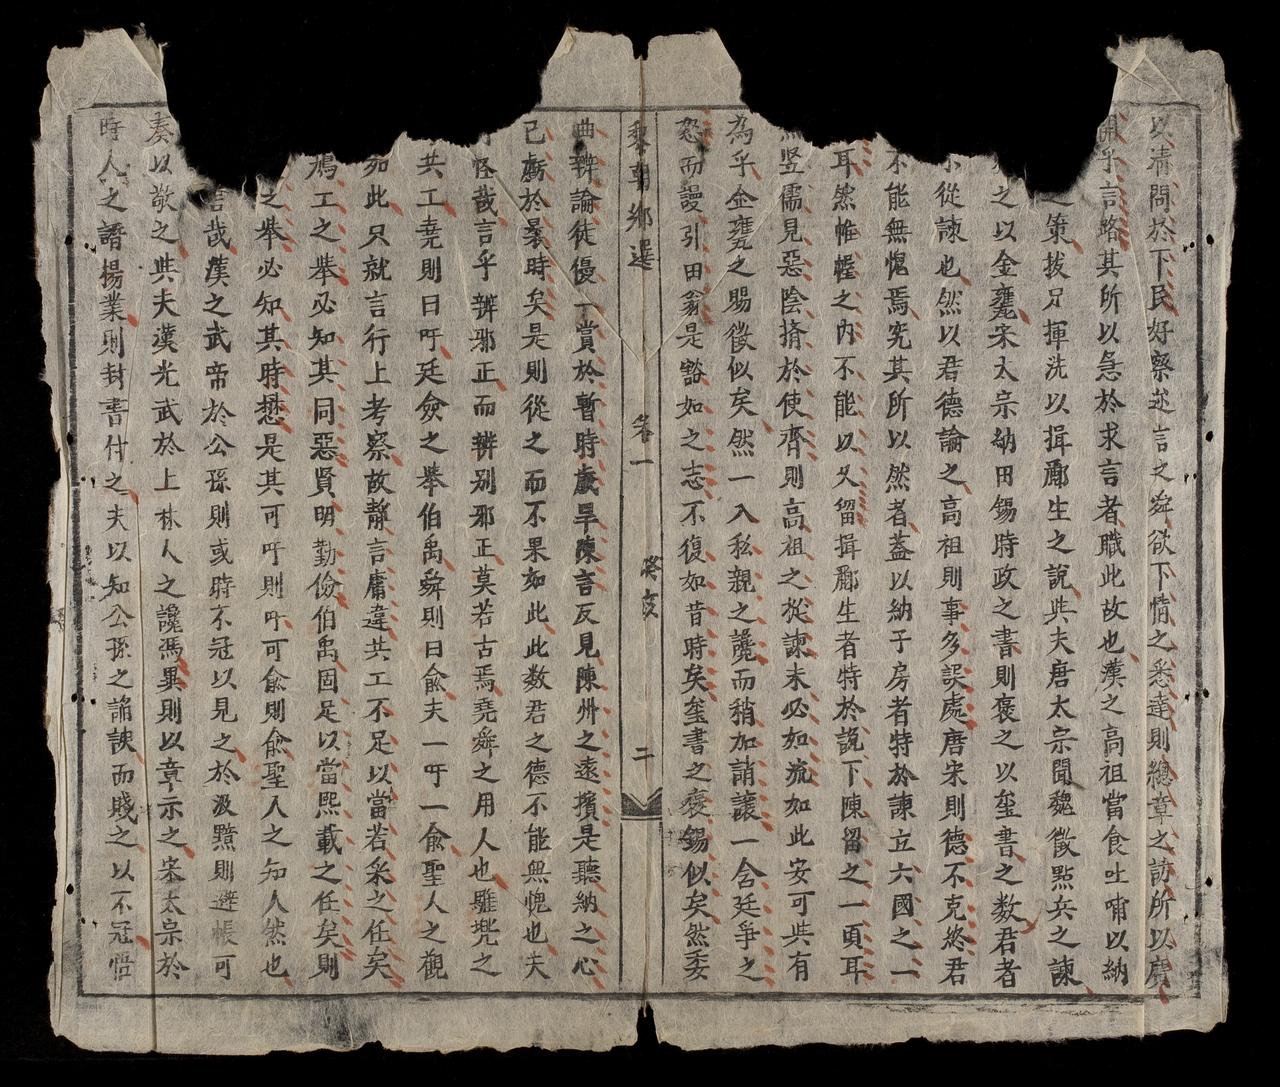 以清問於下民好察迩言之舜欲下情之悉達則總章之訪所以廣
開乎言路其所以急於求言者職此故也漢之高祖當食吐哺以納
之策拔足揮洗以揖酈生之說共夫唐太宗聞魏徵點兵之諫
之以金甕宋太宗納田錫時政之書則褒之以璽書之数君者
從諫也然以君德論之高祖則事多誤處唐宋則德不克終君
不能無愧焉究其所以然者蓋以納子房者特於諫立六國之一
耳然帷幄之内不能以久留揖酈生者特於說下陳留之一頁耳
竖儒見惡陰揹於使齊則高祖之從諫未必如流如此安可共有
為乎金甕之賜徵似矣然一入私親之讒而稍加誚讓一含廷爭之
怨而謾引田翁是豁如之志不復如昔時矣璽書之褒錫似矣然委
黎朝鄉選
卷一
癸亥
二
曲辨論徒優一賞於暫時歲旱陳言反見陳州之遠擯是聽納之心
己虧於曩時矣是則從之而不果如此此数君之德不能無愧也夫
怪哉言乎辨邪正而辨别邪正莫若古焉堯舜之用人也驩兜之
共工堯則曰吁廷僉之舉伯禹舜則曰俞夫一吁一俞聖人之觀
如此只就言行上考察故靜言庸違共工不足以當若采之任矣
鳩工之舉必知其同惡賢明勤儉伯禹固足以當熙載之任矣則
之舉必知其時懋是其可吁則吁可俞則俞聖人之知人然也
言哉漢之武帝於公孫則或時不冠以見之於汲黯則避帳可
奏以敬之共夫漢光武於上林人之讒馮異則以章示之宋太宗於
時人之譖楊業則封書付之夫以知公孫之諂諛而賤之以不冠悟